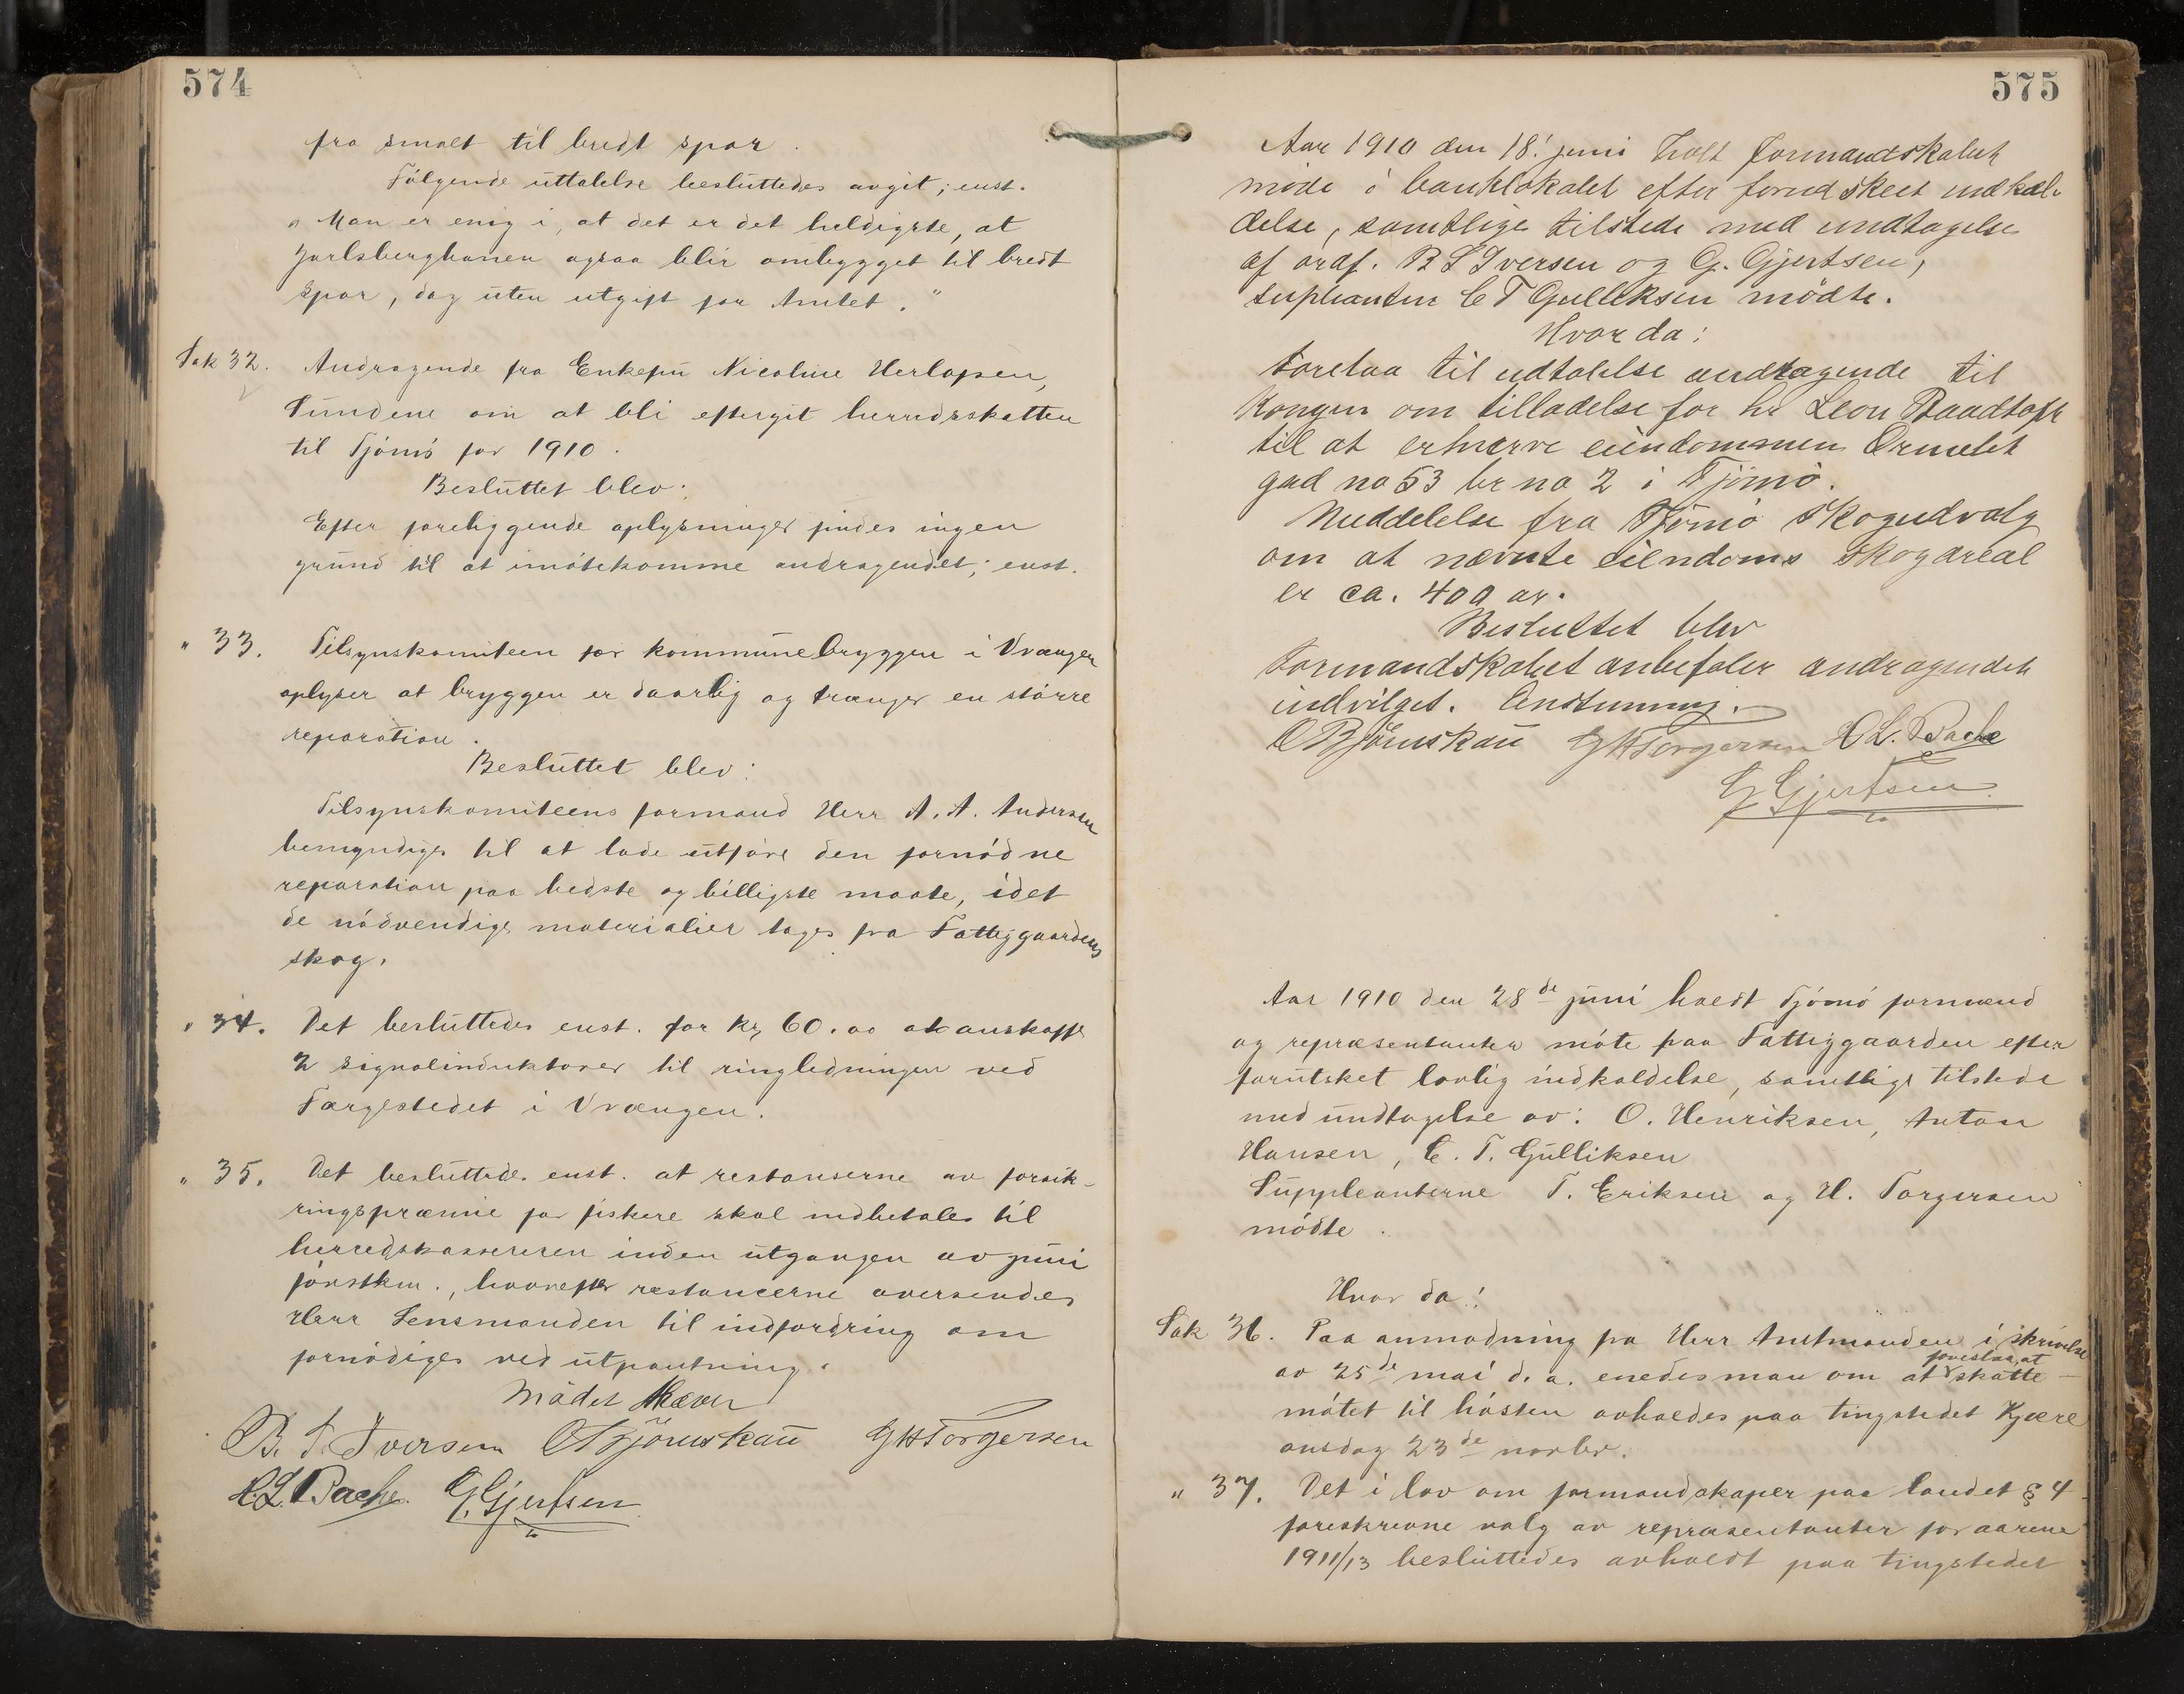 574
fra smalt til bredt spor.
Følgende uttalelse besluttedes avgit; enst.
„Man er enig i, at det er det heldigste, at
Jarlsbergbanen ogsaa blir ombygget til bredt
spor, dog uten utgift for Amtet."
Sak 32. Andragende fra Enkefru Nicoline Herlofsen,
Sundene om at bli eftergit herredsskatten
til Tjømø for 1910.
Besluttet blev:
Efter foreliggende oplysninger findes ingen
grund til at imøtekomme andragendet; enst.
" 33. Tilsynskomiteen for kommunebryggen i Vrængen
oplyser at bryggen er daarlig og trænger en større
reparation.
Besluttet blev:
Tilsynskomiteens formand Herr A. A. Andersen
bemyndiges til at lade utføre den fornødne
reparation paa bedste og billigste maate, idet
de nødvendige materialier tages fra Fattiggaardens
skog.
" 34. Det besluttedes enst. for kr. 60.00 at anskaffe
2 signalinduktorer til ringledningen ved
Færgestedet i Vrængen.
" 35. Det besluttedes enst. at restanserne av forsik-
ringspræmie for fiskere skal indbetales til
herredskassereren inden utgangen av juni
førstkm., hvorefter restancerne oversendes
Herr Lensmanden til indfordring om
fornødiges ved utpantning.
Mødet Hævet
B. S. Iversen O Bjømskau G H Torgersen
H. L. Bache G. Gjertsen
575
Aar 1910 den 18! juni holt formandskabet
møde i banklokalet efter forudskeet indkal-
delse, samtlige tilstede med undtagelse
af ordf. B S Iversen og G. Gjertsen,
supleanten C T Gulliksen mødte.
Hvor da:
Forelaa til udtalelse andragende til
Kongen om tilladelse for hr Leon
til at erhverve eiendommen Ormelet
gad no 53 br no 2 i Tjømø.
Meddelelse fra Tjømø Skogudvalg
om at nævnte eiendoms skogareal
er ca. 400 ar.
Besluttet blev
Formandskabet anbefaler andragendet
indvilget. Enstemmig.
O Bjømskau G H Torgersen H L. Bache
G Gjertsen
Aar 1910 den 28de juni holdt Tjømø formænd
og repræsentanter møte paa Fattiggaarden efter
forutsket lovlig indkaldelse, samtlige tilstede
med undtagelse av: O. Henriksen, Anton
Hansen, C. T. Gulliksen
Suppleanterne T. Eriksen og H. Torgersen
mødte.
Hvor da:
Sak 36. Paa anmodning fra Herr Amtmanden i skrivelse
av 25de mai d. a. enedes man om at foreslaa, at skatte-
møtet til høsten avholdes paa tingstedet Kjære
onsdag 23de novbr.
" 37. Det i lov om formandskaper paa landet § 4
foreskrevne valg av repræsentanter for aarene
1911/13 besluttedes avholdt paa tingstedet